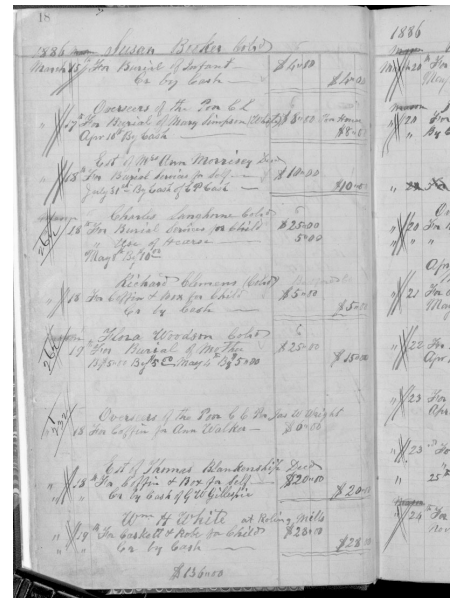 18
1886 Susan Booker Cold
March 15 For Burial of Infant $4.00
Cr by Cash $4.00
Overseers of the Poor C L
17 For Burial of Mary Simpson (White) $8.00 Poor House
Apr 10th By Cash $8.00
Est of Mrs Ann Morrisey Decd
" 18 For Burial Services for Self $10.00
July 31st By Cash of Est Cash $10.00
Charles Langhorne Cold
18 For Burial Services for Child $25.00
" Use of Hearse 5.00
May 8th By
Richard Clemens (Cold)
" 18 For Coffin & Box for Child $5.00
Cr by Cash $5.00
Flora Woodson Cold
19 For Burial of Mother $25.00
By 5.00 May By 5.00 $15.00
Overseers of the Poor C C Per Jas W Wright
18 For Coffin for Ann Walker
Est of Thomas Blankenship Decd
" 18th For Coffin & Box for Self $20.00
Cr by Cash of G W Gillespie $20.00
Wm H White at Roling Mills
" 19th For Caskett & Robe for Child $28.00
" " Cr by Cash $28.00
$136.00
1886
20 For
May
20 For
By C
" 20 For
" "
Apri
" 21 For
May
" 22 For
Apr
" 23 For
Apr
" 23 "
" 25
" 24 For
Nov